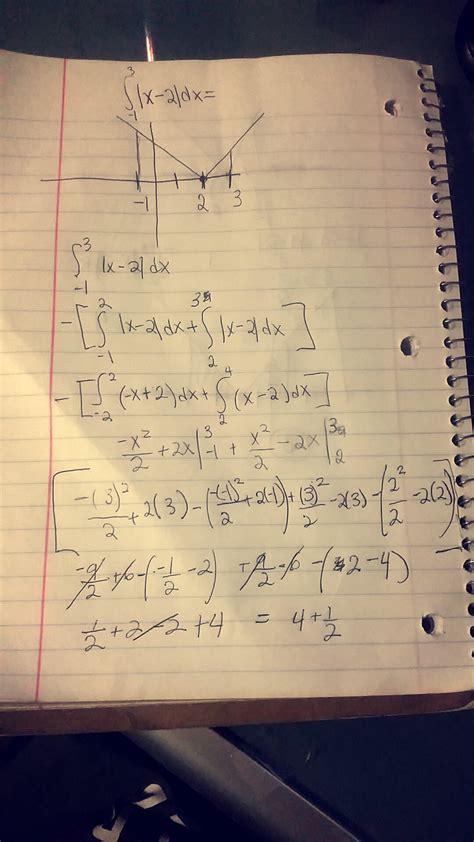 ∫₋₁³ |x-2|dx=
-1 2 3
∫₋₁³ |x-2|dx
-[∫₋₁² |x-2|dx + ∫₂³ |x-2|dx]
-[∫₋₂² (-x+2)dx + ∫₂⁴ (x-2)dx]
-x²/2 + 2x |₋₁³ + x²/2 - 2x |₂³
[-(3)²/2 + 2(3) - (-(-1)²/2 + 2(-1)) + (3)²/2 - 2(3) - (2²/2 - 2(2))]
-9/2 + 6 - (-1/2 - 2) + 9/2 - 6 - (2-4)
1/2 + 2 - 2 + 4 = 4 + 1/2